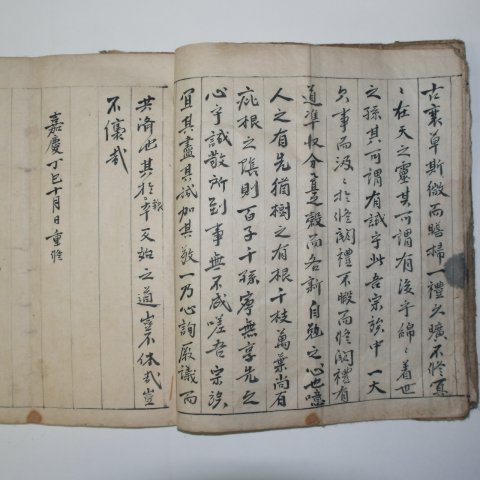 古襄草斯微而瞻掃一禮久曠不修冥
〻在天之靈其可謂有後乎綿〻着世
之孫其可謂有誠乎此吾宗族中一大
欠事而汲〻於修闕禮不暇而修闕禮有
道準收分之穀而各新自勉之心也噫
人之有先猶樹之有根千枝萬葉尚有
庇根之蔭則百子千孫寧無享先之
心乎誠敬所到事無不成嗟吾宗族
宜其盡其誠加其敬一乃心詢厥議而
共濟也其於報本反始之道豈不休哉豈
不懿哉
嘉慶丁巳十月日重修